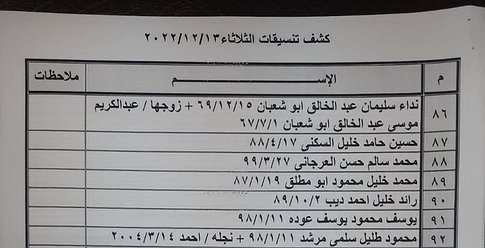 كشف تنسيقات الثلاثاء ٢٠٢٢/١٢/١٣
م الإســـــم ملاحظات
٨٦ نداء سليمان عبد الخالق ابو شعبان ٦٩/١٢/١٥ + زوجها / عبدالكريم
موسى عبد الخالق ابو شعبان ٦٧/٧/١
٨٧ حسين حامد خليل السكنى ٨٨/٤/١٧
٨٨ محمد سالم حسن العرجاني ٩٩/٣/٢٧
٨٩ محمد خليل محمود ابو مطلق ٨٧/١/١٩
٩٠ رائد خليل احمد ديب ٨٩/١٠/٢
٩١ يوسف محمود يوسف عوده ٩٨/١/١١
٩٢ محمود طليل سلمي مرشد ٩٨/١/١١ + نجله / احمد ٢٠٠٤/٣/١٤